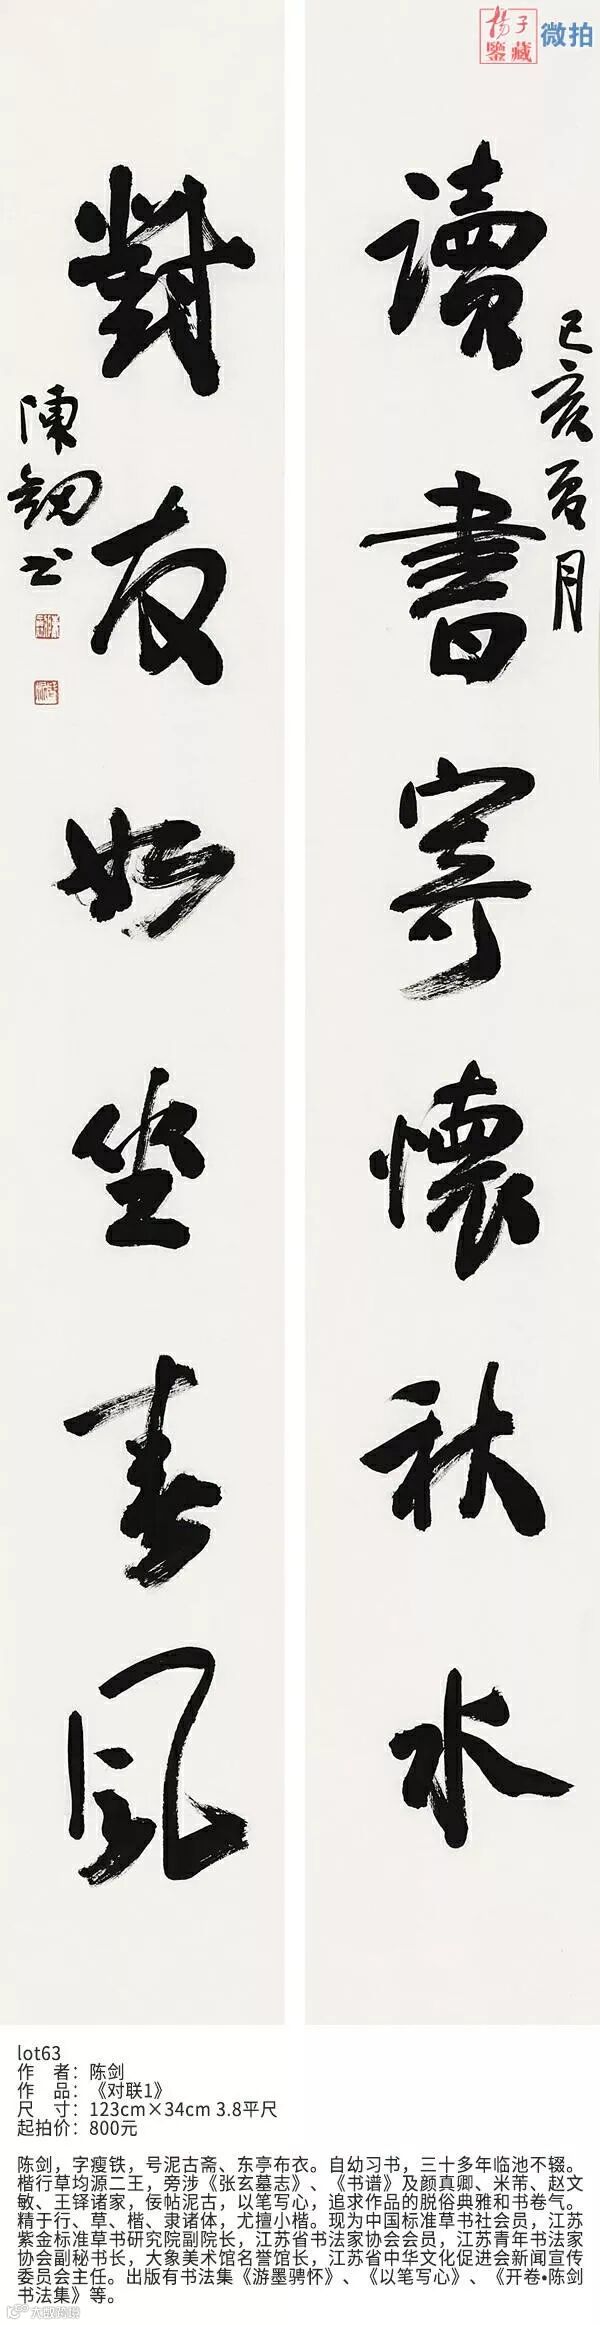 杨子
鉴藏
微拍
讀書寄懷秋水
己亥百月
對友如坐春風
陳劍书
lot63
作　者：陈剑
作　品：《对联1》
尺　寸：123cm×34cm 3.8平尺
起拍价：800元
陈剑，字瘦铁，号泥古斋、东亭布衣。自幼习书，三十多年临池不辍。
楷行草均源二王，旁涉《张玄墓志》、《书谱》及颜真卿、米芾、赵文
敏、王铎诸家，佞帖泥古，以笔写心，追求作品的脱俗典雅和书卷气。
精于行、草、楷、隶诸体，尤擅小楷。现为中国标准草书社会员，江苏
紫金标准草书研究院副院长，江苏省书法家协会会员，江苏青年书法家
协会副秘书长，大象美术馆名誉馆长，江苏省中华文化促进会新闻宣传
委员会主任。出版有书法集《游墨骋怀》、《以笔写心》、《开卷•陈剑
书法集》等。